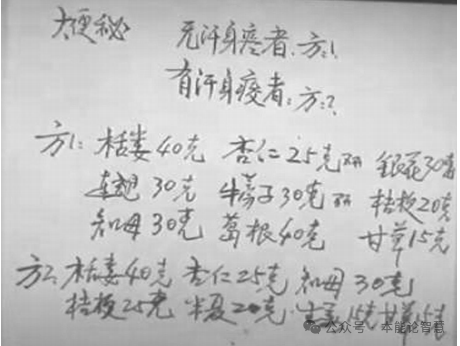 大便秘 无汗身疼者:方1
有汗身疼者:方2
方1: 栝蒌40克 杏仁25克研 银花30克
连翘30克 牛蒡子30克研 桔梗20克
知母30克 葛根40克 甘草15克
方2: 栝蒌40克 杏仁25克 知母30克
桔梗25克 半夏20克 生姜15克 甘草15克
公众号·本能论智慧